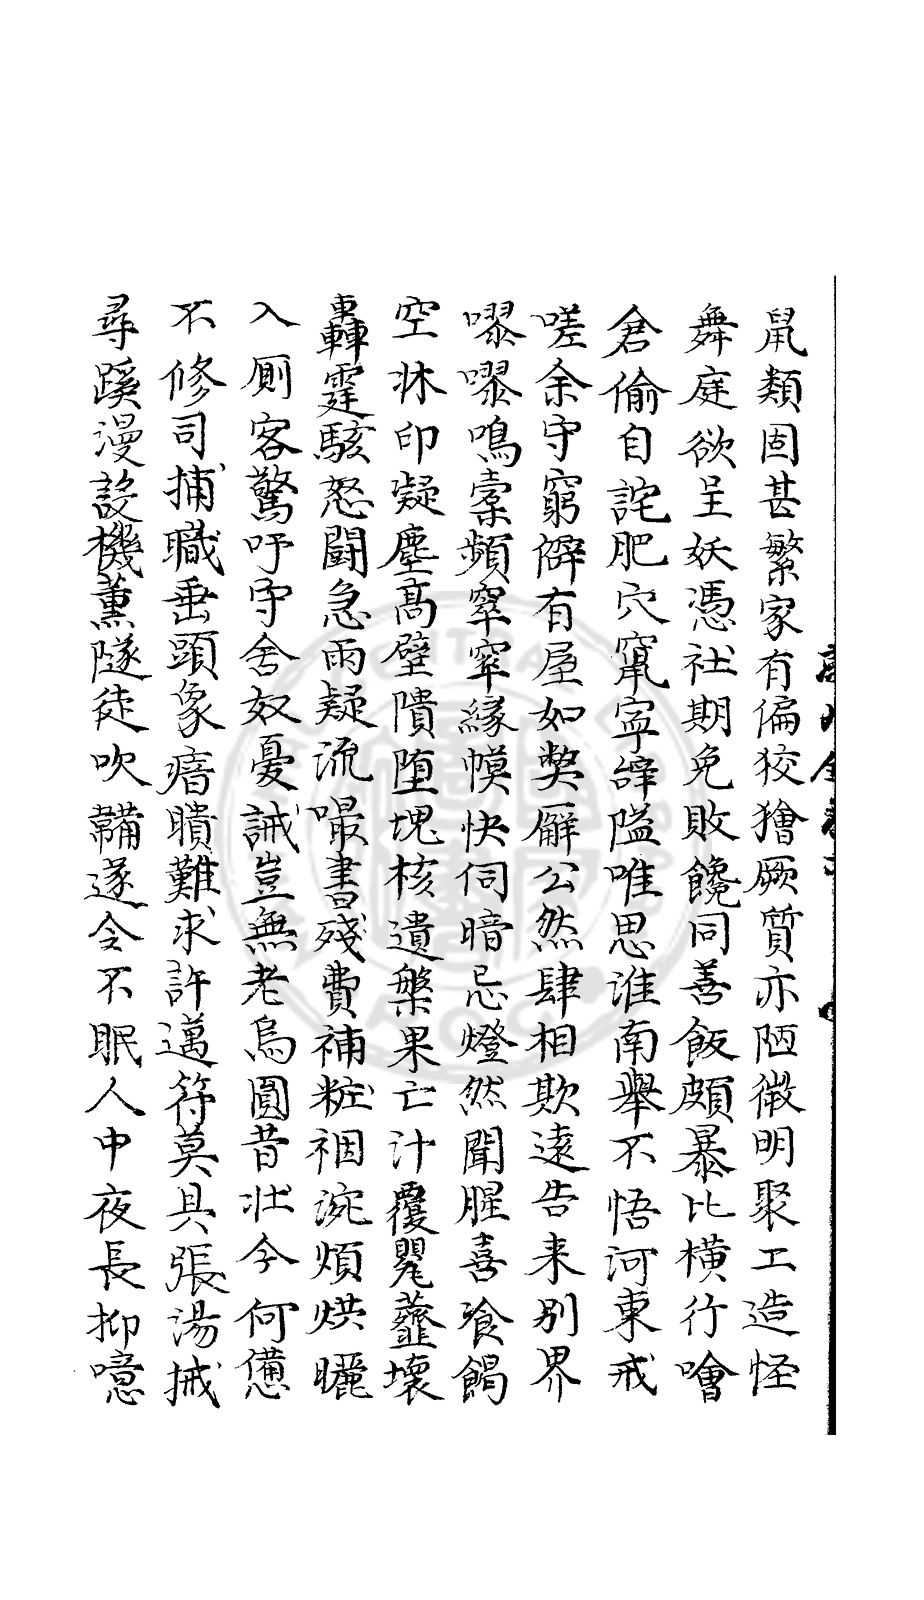 鼠類固甚繁家有偏狡獪厥質亦陋微明聚工造怪
舞庭欲呈妖憑社期免敗饞同善飯頗暴比橫行噲
倉偷自詫肥穴竄寜辭隘唯思誰南舉不悟河東戒
嗟余守窮僻有屋如弊廨公然肆相欺遠告来別界
嘐嘐鳴橐頻窣窣緣幙快伺暗忌燈然聞腥喜飡餲
空牀印凝塵髙壁隤堕塊核遺槃果亡汁覆甖虀壞
轟霆駭怒鬪急雨疑流嘬書殘費補粧裀涴煩烘曬
入厠客驚吁守舍奴憂誡豈無老烏圓昔壯今何憊
不修司捕職垂頭象瘖聵難求許邁符莫具張湯械
尋蹊漫設機薰隧徒吹韛遂令不眠人中夜長抑噫